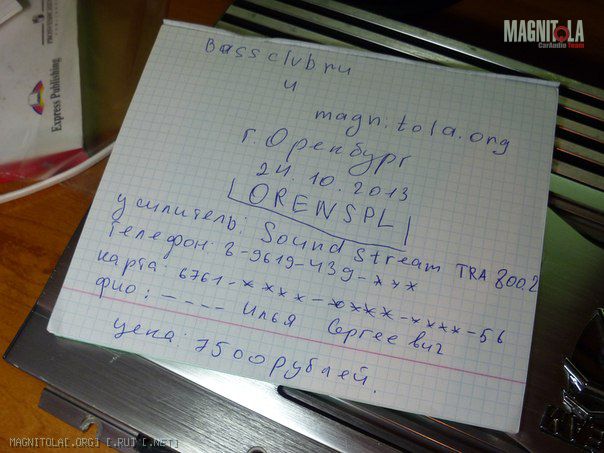 MAGNITOLA
CarAudio Team
Express Publishing
Bassclub.ru
и
magnitola.org
г. Оренбург
24.10.2013
ORENSPL
усилитель: Sound Stream TRA 800.2
Телефон: 8-9619-439-***
карта: 6761-****-****-****-56
фио: ---- Илья Сергеевич
цена: 7500 рублей.
MAGNITOLA[.ORG] [.RU] [.NET]